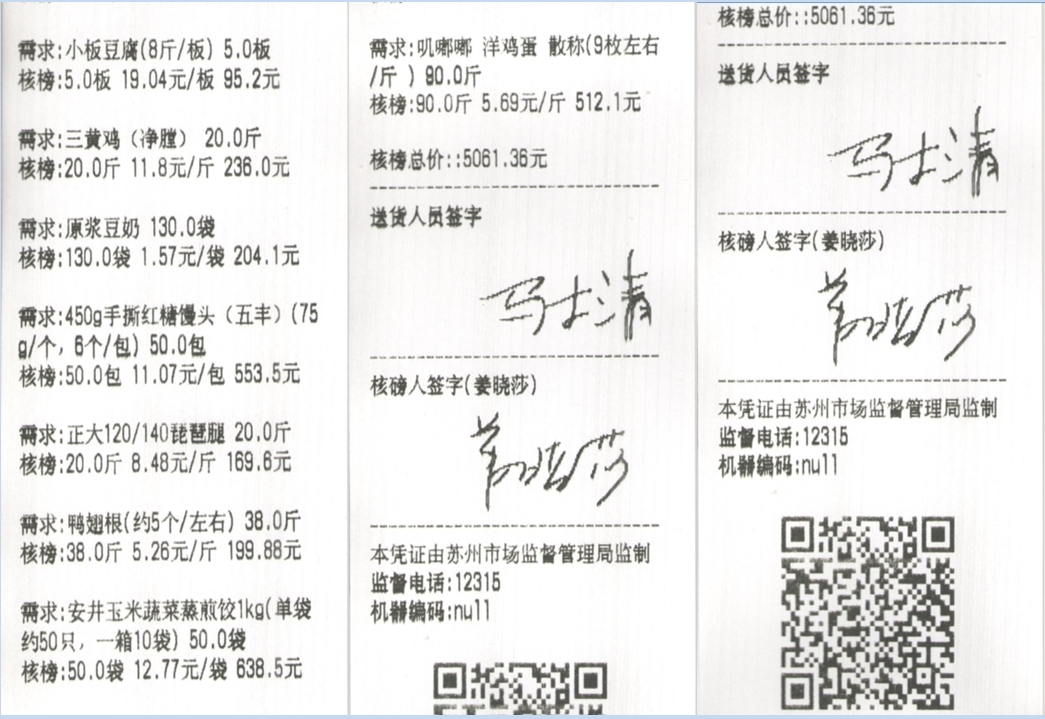 需求:小板豆腐(8斤/板) 5.0板
核榜:5.0板 19.04元/板 95.2元
需求:三黄鸡（净膛） 20.0斤
核榜:20.0斤 11.8元/斤 236.0元
需求:原浆豆奶 130.0袋
核榜:130.0袋 1.57元/袋 204.1元
需求:450g手撕红糖馒头（五丰）(75
g/个，6个/包) 50.0包
核榜:50.0包 11.07元/包 553.5元
需求:正大120/140琵琶腿 20.0斤
核榜:20.0斤 8.48元/斤 169.6元
需求:鸭翅根(约5个/左右) 38.0斤
核榜:38.0斤 5.26元/斤 199.88元
需求:安井玉米蔬菜蒸煎饺1kg(单袋
约50只，一箱10袋) 50.0袋
核榜:50.0袋 12.77元/袋 638.5元
需求:叽嘟嘟 洋鸡蛋 散称(9枚左右
/斤 ) 90.0斤
核榜:90.0斤 5.69元/斤 512.1元
核榜总价::5061.36元
送货人员签字
马士清
核磅人签字(姜晓莎)
姜晓莎
本凭证由苏州市场监督管理局监制
监督电话:12315
机器编码:null
核榜总价::5061.36元
送货人员签字
马士清
核磅人签字(姜晓莎)
姜晓莎
本凭证由苏州市场监督管理局监制
监督电话:12315
机器编码:null